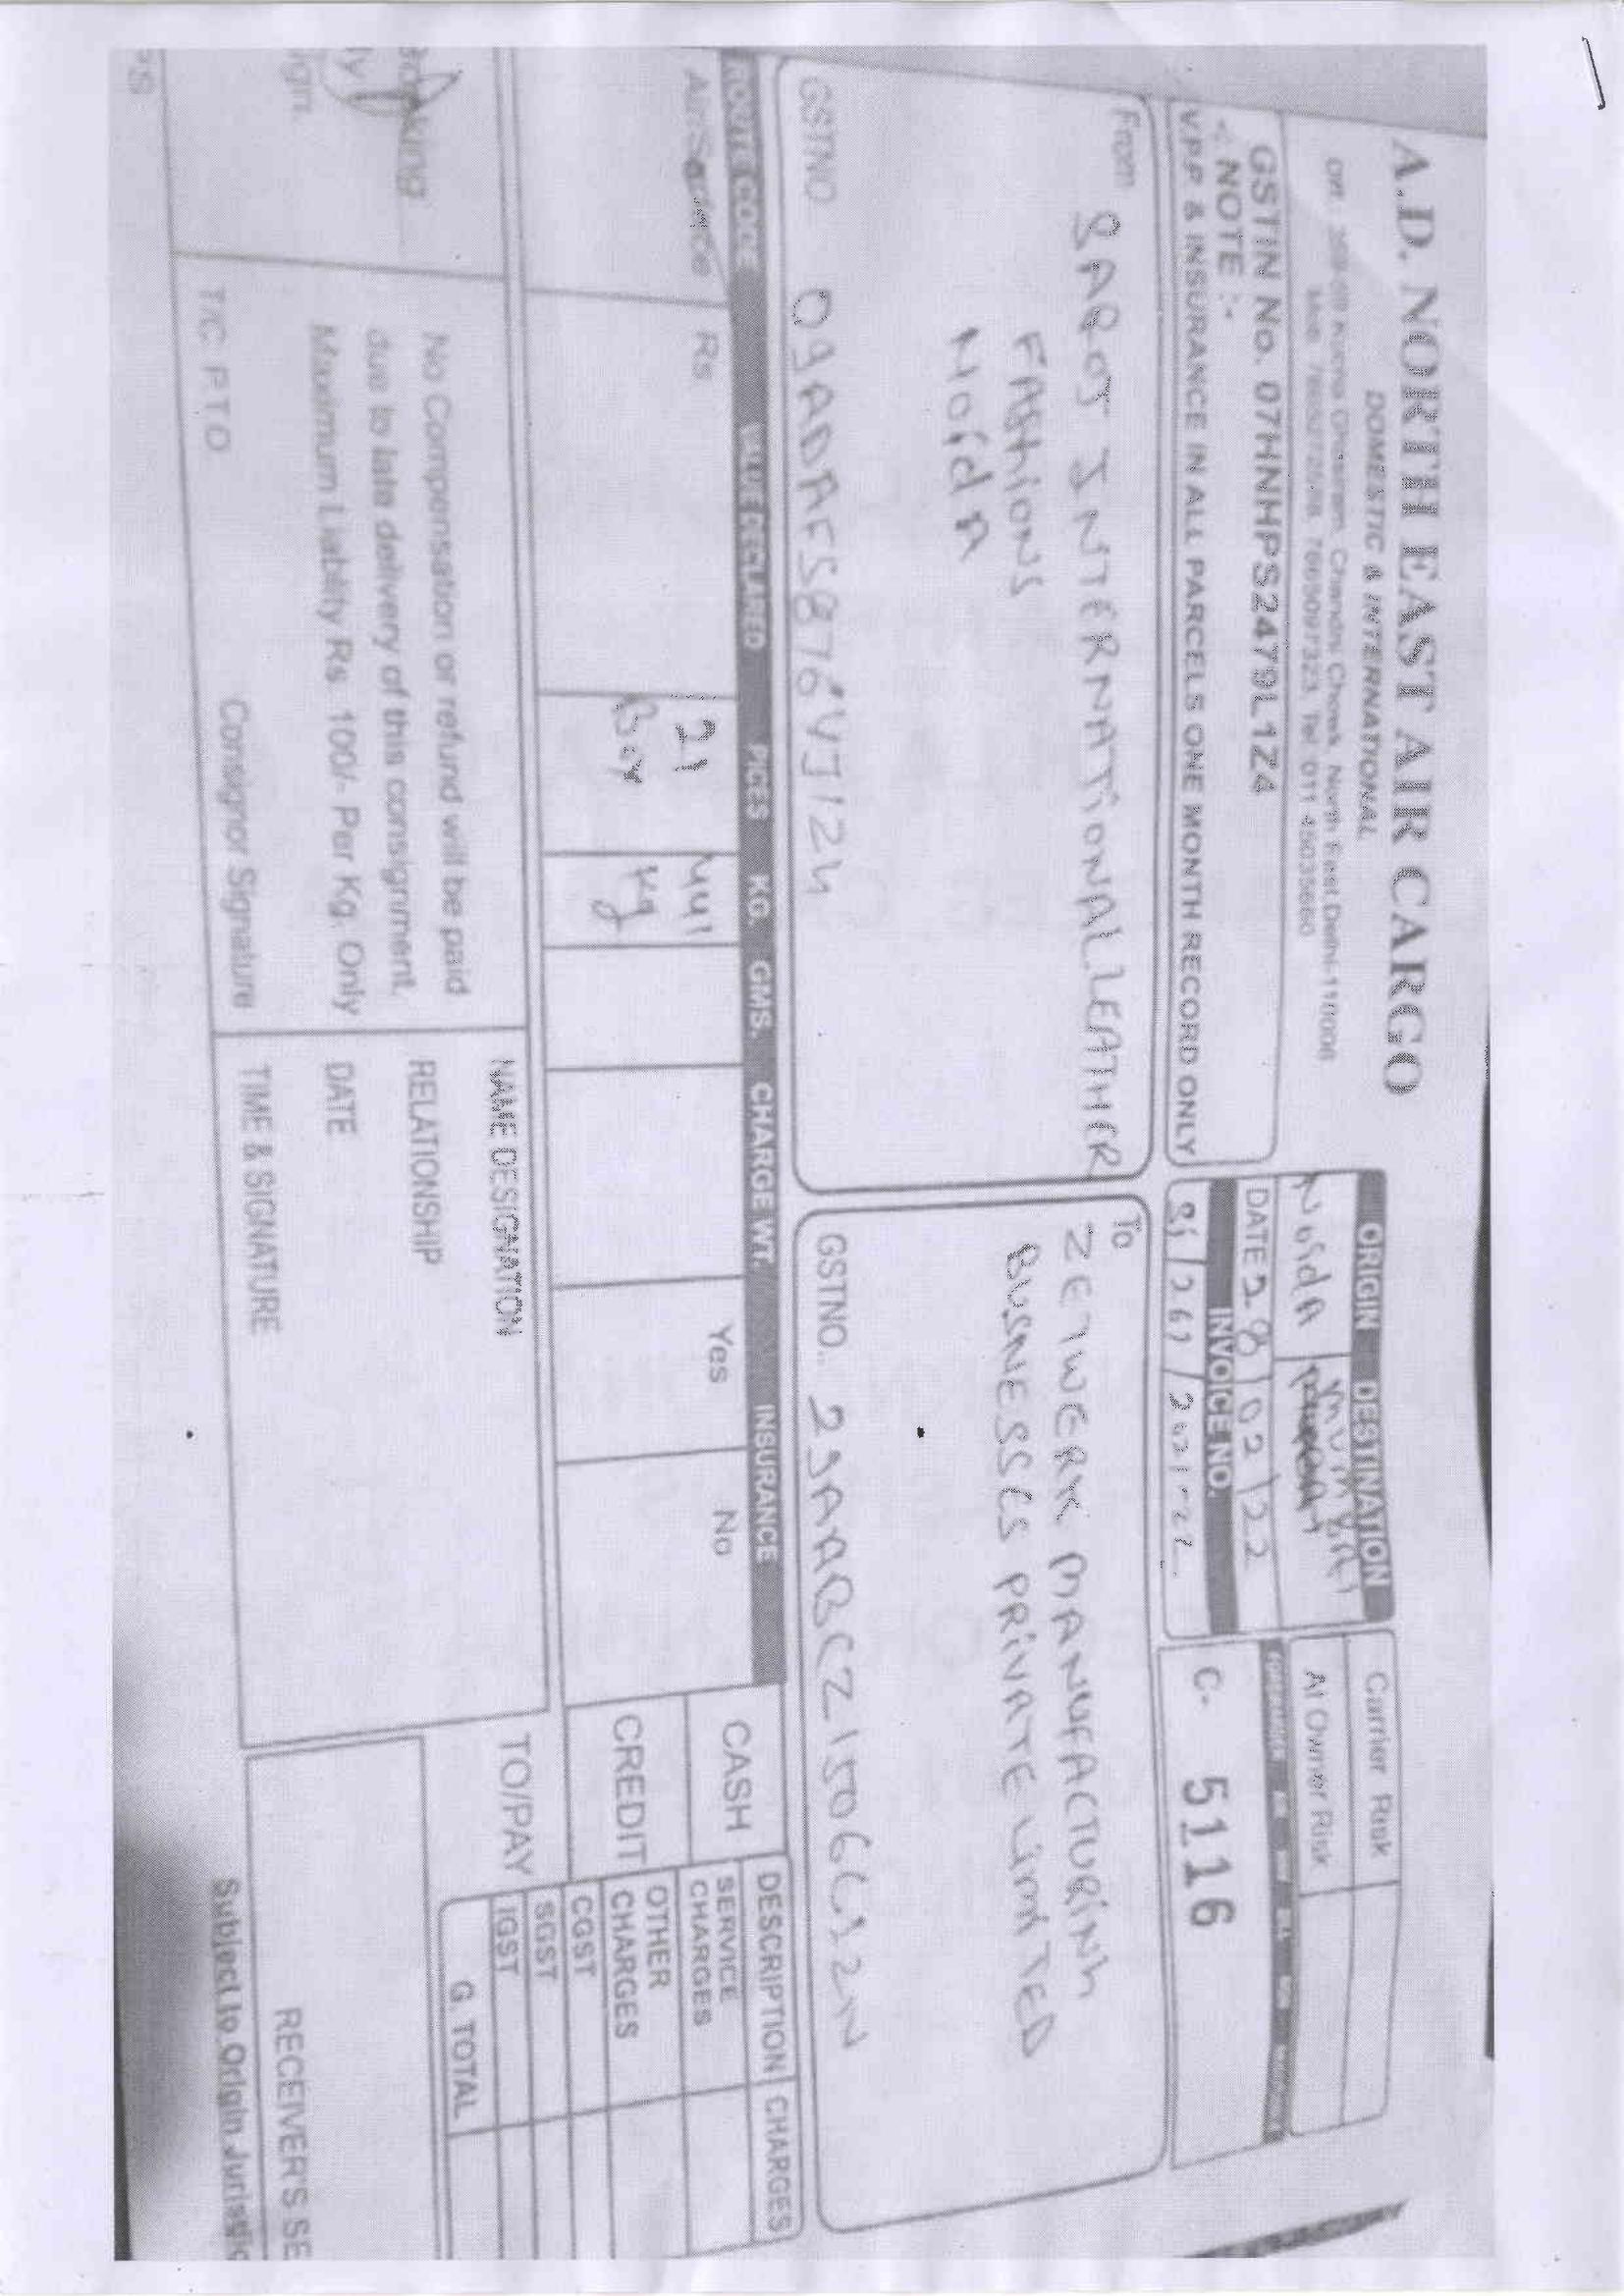 A.D. NORTH EAST AIR CARGO
DOMESTIC & INTERNATIONAL
Chandni Chowk, North East Delhi-110006
Tel: 011
GSTIN No. 07HNHPS2479L1Z4
NOTE :-
VPP & INSURANCE IN ALL PARCELS ONE MONTH RECORD ONLY
ORIGIN DESTINATION
NoidA
DATE 28/02/22
INVOICE NO.
Carrier Risk
At Owner Risk
C- 5116
From SAROJ INTERNATIONAL LEATHER
FAShiONS
NoidA
GSTNO 09ADAFS8976
To
ZETWERK MANUFACTURINh
BUSNESSES PRIVATE LiMiTED
GSTNO.
ROUTE CODE VALUE DECLARED PICES KG. GMS. CHARGE WT. INSURANCE
Rs
21
Box
441
Kg
Yes No
CASH
CREDIT
TO/PAY
DESCRIPTION CHARGES
SERVICE CHARGES
OTHER CHARGES
CGST
SGST
IGST
G TOTAL
No Compensation or refund will be paid
due to late delivery of this consignment.
Maximum Liability Rs. 100/- Per Kg. Only
T/C P.T.O
Consignor Signature
NAME DESIGNATION
RELATIONSHIP
DATE
TIME & SIGNATURE
RECEIVER'S SE
Subject to Origin